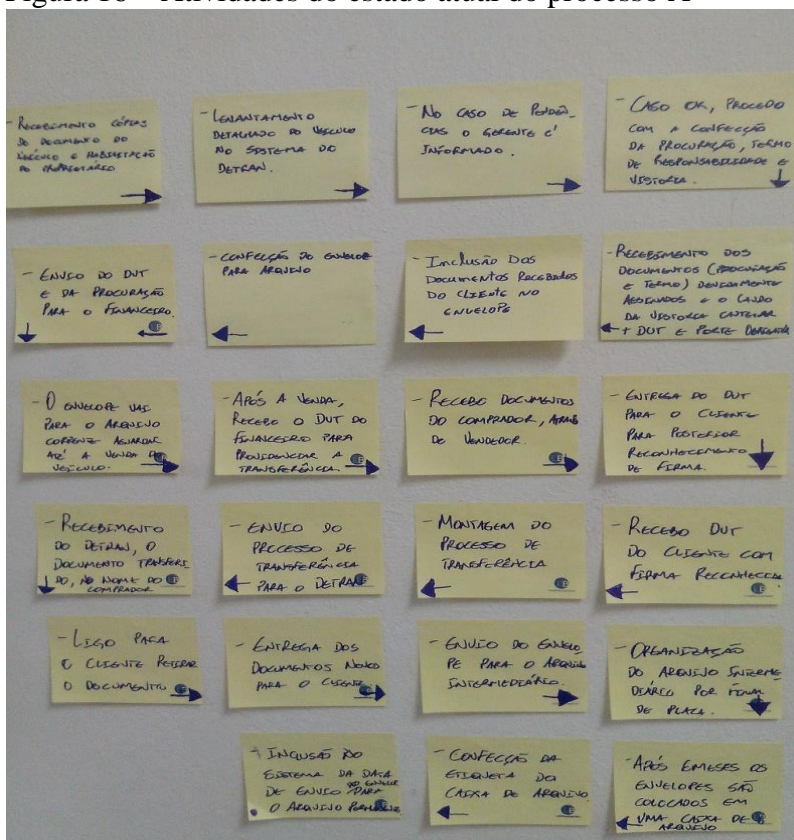 Figura 16 – Atividades do estado atual do processo A
- RECEBIMENTO CÓPIAS
DO DOCUMENTO DO
VEÍCULO E HABILITAÇÃO
DO PROPRIETÁRIO
- LEVANTAMENTO
DETALHADO DO VEÍCULO
NO SISTEMA DO
DETRAN.
- NO CASO DE PENDÊN-
CIAS O GERENTE É
INFORMADO.
- CASO OK, PROCEDO
COM A CONFECÇÃO
DA PROCURAÇÃO, TERMO
DE RESPONSABILIDADE E
VISTORIA.
- ENVIO DO DUT
E DA PROCURAÇÃO
PARA O FINANCEIRO.
- CONFECÇÃO DO ENVELOPE
PARA ARQUIVO
- Inclusão Dos
Documentos Recebidos
DO CLIENTE NO
ENVELOPE
- RECEBIMENTO DOS
DOCUMENTOS (PROCURAÇÃO
E TERMO) DEVIDAMENTE
ASSINADOS E O LAUDO
DA VISTORIA CAUTELAR
+ DUT E PORTE
- O ENVELOPE VAI
PARA O ARQUIVO
CORRENTE AGUARDAR
ATÉ A VENDA DO
VEÍCULO.
- APÓS A VENDA,
RECEBO O DUT DO
FINANCEIRO PARA
PROVIDENCIAR A
TRANSFERÊNCIA.
- RECEBO DOCUMENTOS
DO COMPRADOR,
DO VENDEDOR.
- ENTREGA DO DUT
PARA O CLIENTE
PARA POSTERIOR
RECONHECIMENTO
DE FIRMA.
- RECEBIMENTO
DO DETRAN, O
DOCUMENTO TRANSFERI
DO, NO NOME DO
COMPRADOR
- ENVIO DO
PROCESSO DE
TRANSFERÊNCIA
PARA O DETRAN
- MONTAGEM DO
PROCESSO DE
TRANSFERÊNCIA
- RECEBO DUT
DO CLIENTE COM
FIRMA RECONHECIDA
- LIGO PARA
O CLIENTE RETIRAR
O DOCUMENTO
- ENTREGA DOS
DOCUMENTOS NOVO
PARA O CLIENTE
- ENVIO DO ENVELO
PE PARA O ARQUIVO
INTERMEDIÁRIO.
- ORGANIZAÇÃO
DO ARQUIVO INTERME
DIÁRIO POR FINAL
DE PLACA.
- INCLUSÃO NO
SISTEMA DA DATA
DE ENVIO DO ENVELOPE PARA
O ARQUIVO PERMANENTE
- CONFECÇÃO DA
ETIQUETA DA
CAIXA DE ARQUIVO
- APÓS 6 MESES OS
ENVELOPES SÃO
COLOCADOS EM
UMA CAIXA DE
ARQUIVO